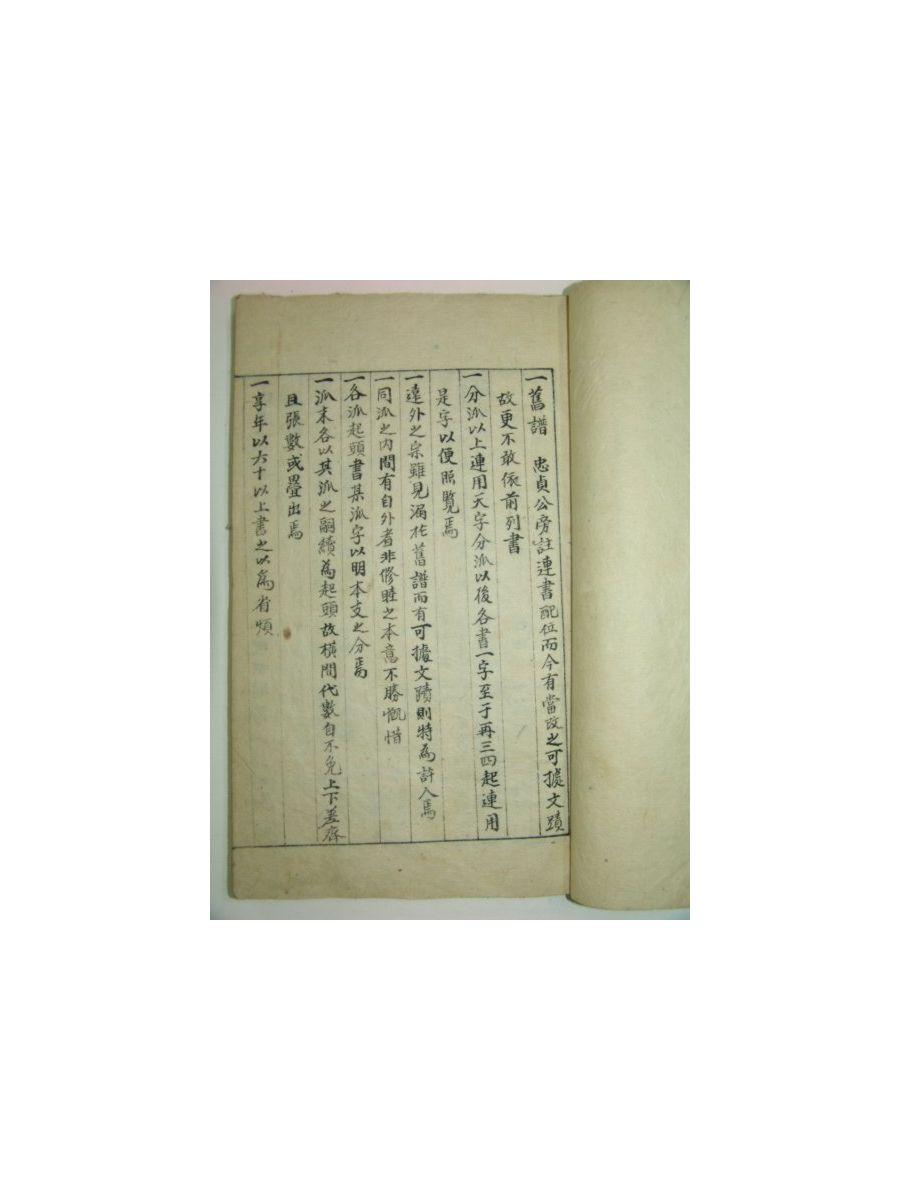 一舊譜 忠貞公旁註連書配位而今有當改之可據文蹟
故更不敢依前列書
一分派以上連用天字分派以後各書一字至于再三四起連用
是字以便照覽焉
一遠外之宗雖見漏於舊譜而有可據文蹟則特為許入焉
一同派之內間有自外者非修睦之本意不勝慨惜
一各派起頭書某派字以明本支之分焉
一派末各以其派之嗣續為起頭故橫間代數自不免上下差齊
且張數或疊出焉
一享年以六十以上書之以為省煩